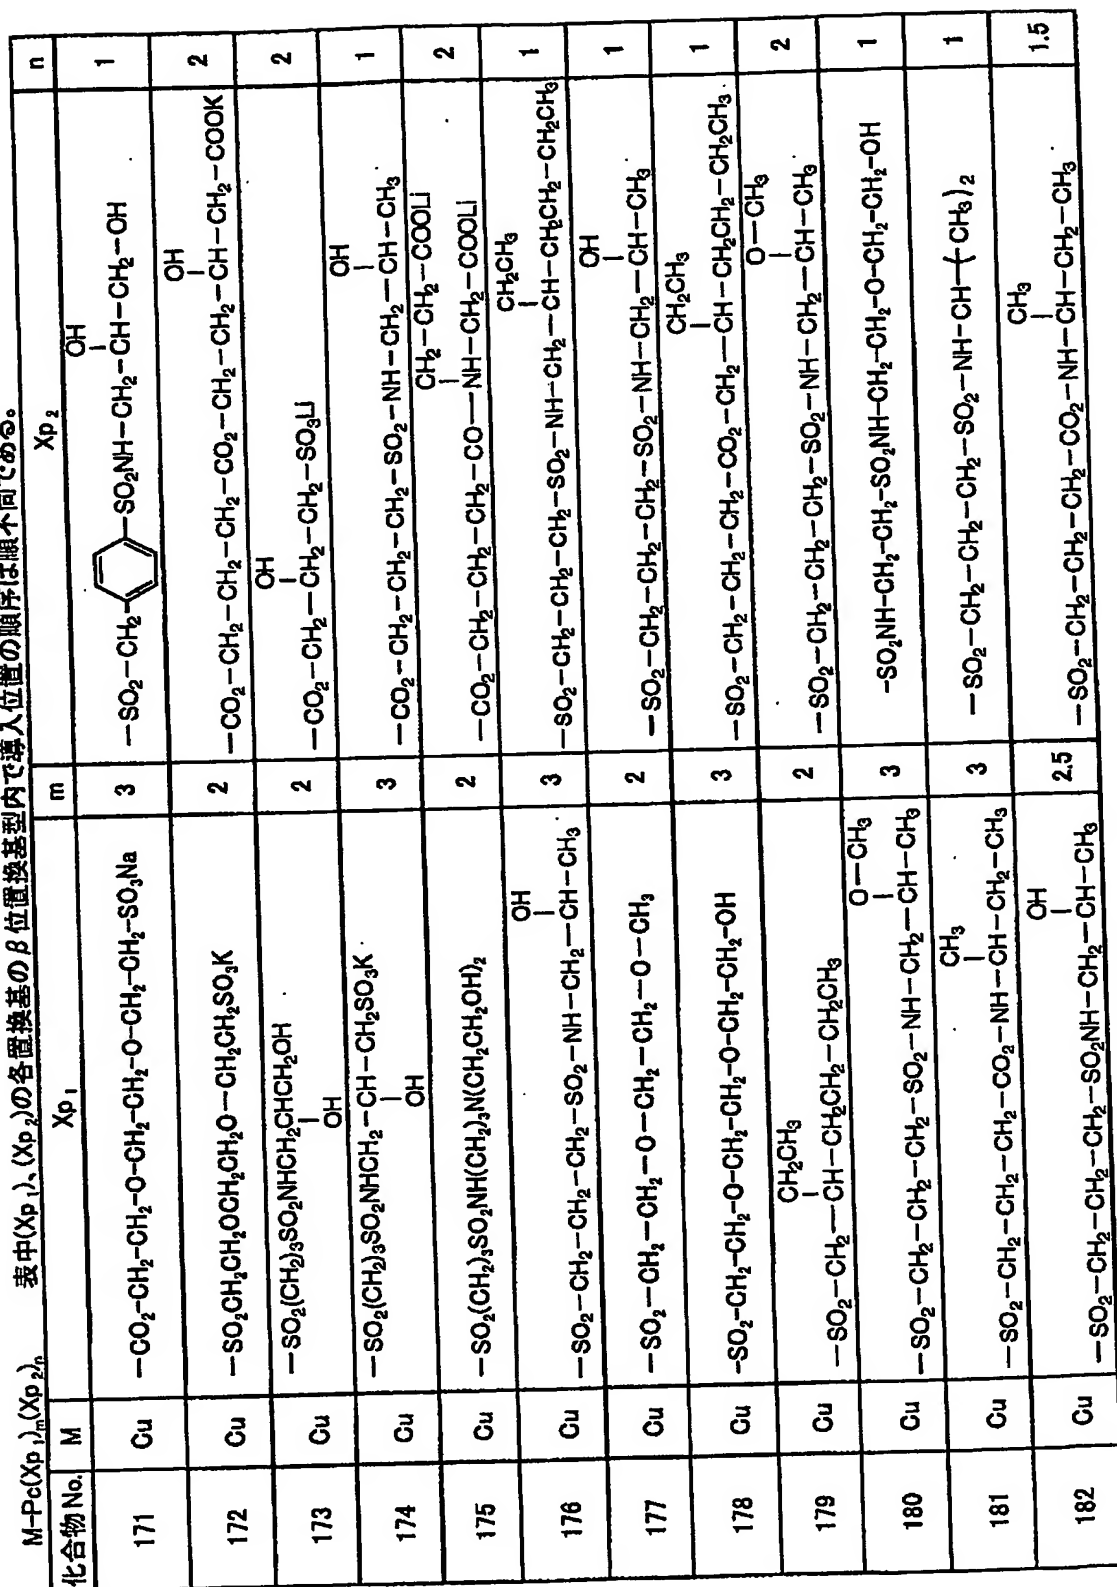 M-Pc(Xp₁)ₘ(Xp₂)ₙ 表中(Xp₁)、(Xp₂)の各置換基のβ位置換基型内で導入位置の順序は順不同である。
化合物No. M Xp₁ m Xp₂ n
171 Cu —CO₂-CH₂-CH₂-O-CH₂-CH₂-O-CH₂-CH₂-SO₃Na 3 —SO₂-CH₂- -SO₂NH-CH₂-CH(OH)-CH₂-OH 1
172 Cu —SO₂CH₂CH₂OCH₂CH₂O-CH₂CH₂SO₃K 2 —CO₂-CH₂-CH₂-CH₂-CO₂-CH₂-CH₂-CH(OH)-CH₂-COOK 2
173 Cu —SO₂(CH₂)₃SO₂NHCH₂CH(OH)CH₂OH 2 —CO₂-CH₂-CH₂(OH)-CH₂-SO₃Li 2
174 Cu —SO₂(CH₂)₃SO₂NHCH₂-CH(OH)-CH₂SO₃K 3 —CO₂-CH₂-CH₂-CH₂-SO₂-NH-CH₂-CH(OH)-CH₃ 1
175 Cu —SO₂(CH₂)₃SO₂NH(CH₂)₃N(CH₂CH₂OH)₂ 2 —CO₂-CH₂-CH₂-CH₂-CO-NH(CH₂-CH₂-COOLi)-CH₂-COOLi 2
176 Cu —SO₂-CH₂-CH₂-CH₂-SO₂-NH-CH₂-CH(OH)-CH₃ 3 —SO₂-CH₂-CH₂-CH₂-SO₂-NH-CH₂-CH(CH₂CH₃)-CH₂CH₂-CH₂CH₃ 1
177 Cu —SO₂-CH₂-CH₂-O-CH₂-CH₂-O-CH₃ 2 —SO₂-CH₂-CH₂-CH₂-SO₂-NH-CH₂-CH(OH)-CH₃ 1
178 Cu -SO₂-CH₂-CH₂-O-CH₂-CH₂-O-CH₂-CH₂-OH 3 —SO₂-CH₂-CH₂-CH₂-CO₂-CH₂-CH(CH₂CH₃)-CH₂CH₂-CH₂CH₃ 1
179 Cu —SO₂-CH₂-CH(CH₂CH₃)-CH₂CH₂-CH₂CH₃ 2 —SO₂-CH₂-CH₂-CH₂-SO₂-NH-CH₂-CH(O-CH₃)-CH₃ 2
180 Cu —SO₂-CH₂-CH₂-CH₂-SO₂-NH-CH₂-CH(O-CH₃)-CH₃ 3 -SO₂NH-CH₂-CH₂-SO₂NH-CH₂-CH₂-O-CH₂-CH₂-OH 1
181 Cu —SO₂-CH₂-CH₂-CH₂-CO₂-NH-CH(CH₃)-CH₂-CH₃ 3 —SO₂-CH₂-CH₂-CH₂-SO₂-NH-CH-(CH₃)₂ 1
182 Cu —SO₂-CH₂-CH₂-CH₂-SO₂NH-CH₂-CH(OH)-CH₃ 2.5 —SO₂-CH₂-CH₂-CH₂-CO₂-NH-CH(CH₃)-CH₂-CH₃ 1.5